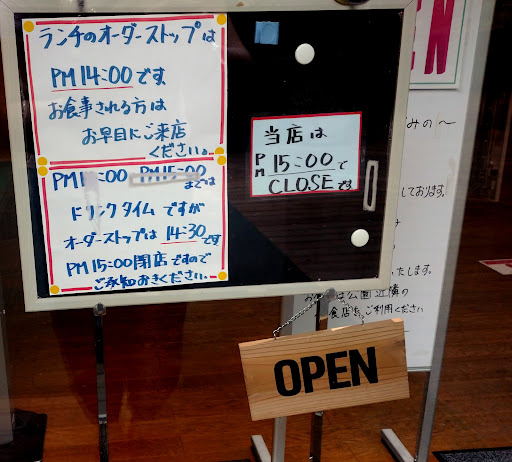 ランチのオーダーストップは
PM 14:00です
お食事される方は
お早目にご来店
ください。
PM1 :00 PM15:00までは
ドリンクタイムですが
オーダーストップは 14:30です
PM 15:00閉店ですので
ご承知おきください。
当店は
PM 15:00で
CLOSEです
EN
みの〜
しております。
たします。
は公園近隣の
食店をご利用ください
OPEN